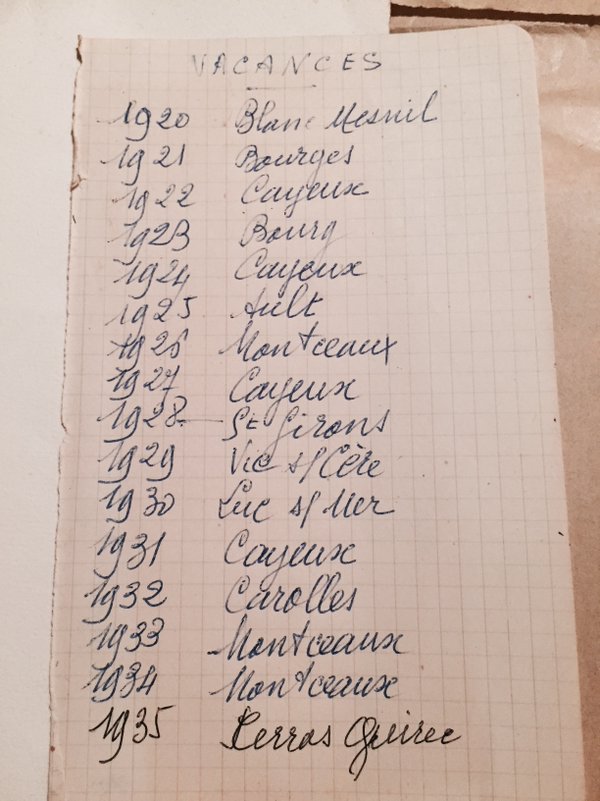 VACANCES
1920 Blanc Mesnil
1921 Bourges
1922 Cayeux
1923 Bourg
1924 Cayeux
1925 Ault
1926 Montceaux
1927 Cayeux
1928 - St Girons
1929 Vic s/Cère
1930 Luc s/Mer
1931 Cayeux
1932 Carolles
1933 Montceaux
1934 Montceaux
1935 Perros Guirec